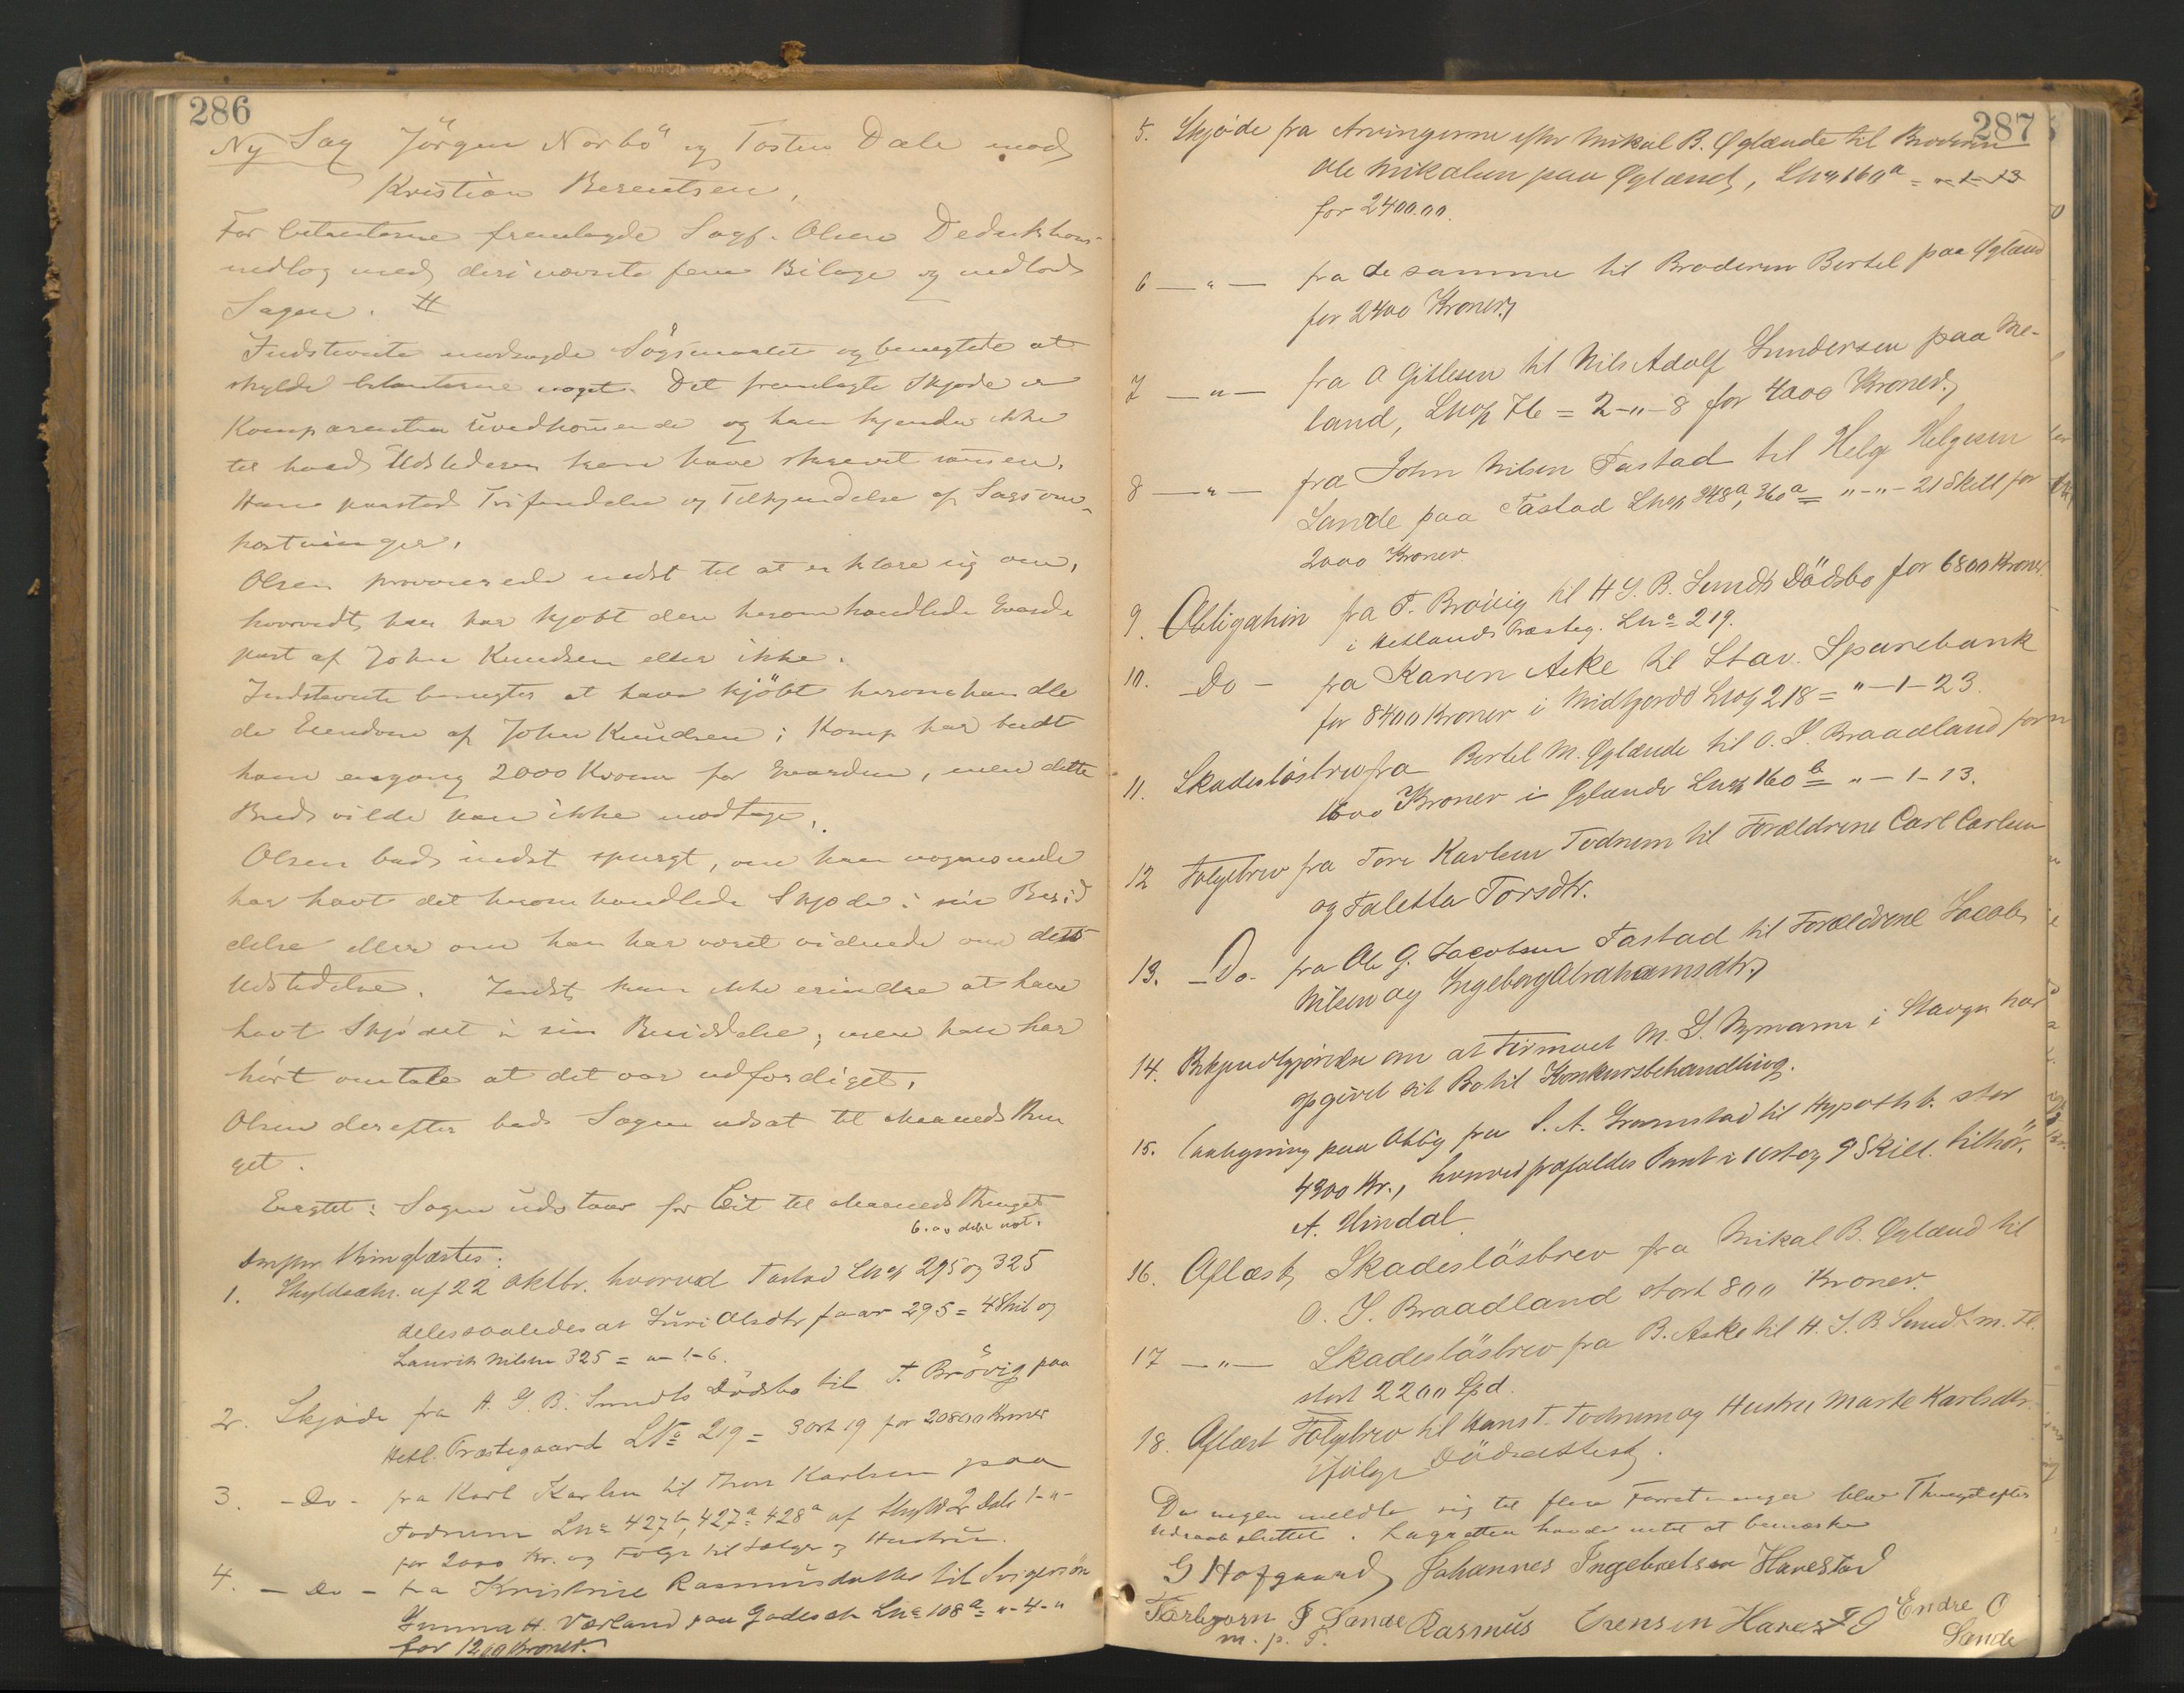 286
Ny Sag Jörgen Norbö og Tosten Dale mod
Kristian Berentsen.
For Citanterne fremlagde Sagf. Olsen Deduktions-
indlæg med deri nævnte fem Bilage og indlod
Sagen. #
Indstevnte modsagde Søgsmaalet og benegtede at
skylde Citanterne noget. Det fremlagte Skjøde er
Komparenten uvedkommende og han kjender ikke
til hvad Udstederen kan have skrevet
Han paastod Frifindelse og Tilkjendelse af Sagsom-
kostninger.
Olsen provocerede indst til at erklære sig om,
hvorvidt han har kjøbt den heromhandlede Gaards
part af John Knudsen eller ikke.
Indstevnte benegter at have kjöbt heromhandle
de Eiendom af John Knudsen; Komp har budt
ham engang 2000 Kroner for Gaarden, men dette
Bud vilde han ikke modtage.
Olsen bad indst spurgt, om han nogensinde
har havt det heromhandlede Skjøde i sin Besid
delse eller om han har været vidende om dets
Udstedelse. Indst. kan ikke erindre at have
havt Skjødet i sin Besiddelse; men han har
hört omtale at det var udfærdiget.
Olsen derefter bad Sagen udsat til Maanedsthin
get.
Eragtet: Sagen udstaar for Cit til Maanedsthinget
6.
Derpaa thinglæstes:
1. Skyldsdeln. af 22 Oktbr. hvorved Tastad Lno 295 og 325
deles saaledes at Guri Olsdtr faar 295 = 4 Skil og
Laurits Nilsen 325 = "-1-6.
2. Skjøde fra H. G. B. Sundts Dödsbo til T. Brövig paa
Hetl. Præstegaard LNo 219 = 3 ort 19 for 20800 Kroner
3. - Do - fra Karl Karlsen til Thore Karlsen paa
Todnem Lno 427b, 427a 428a af Skyld 2 Dale 1-"-
for 2000 Kr. og Følge til Sælger og Hustru.
4. - Do - fra Kristine Rasmusdatter til Svigersön
Gunna H. Værland paa Godeset Lno 108a = "-4-"
for 1200 Kroner.
287
5. Skjöde fra Arvingerne efter Mikal B. Øglænde til Broderen
Ole Mikalsen paa Øglænd, Lno 160a = "-1-13
for 2400.00.
6 —"— fra de samme til Broderen Bertel paa Øglænd
for 2400 Kroner.
7 —"— fra O Gitlesen til Nils Adolf Gundersen paa Me-
land, Lnop 76 = 2-"-8 for 4000 Kroner.
8 —"— fra John Nilsen Tastad til Helge Helgesen
Sande paa Tastad Lno 348a, 360a = "-"-21 Skill for
2000 Kroner.
9. Obligation fra T. Brövig til H G. B. Sundts Dödsbo for 6800 Kroner.
i Hetlands Præsteg. Lno 219.
10. - Do - fra Karen Aske til Stav. Sparebank
for 8400 Kroner i Midtgaard Lnop 218 = "-1-23.
11. Skadeslösbrev fra Bertel M. Øglænde til O. J. Braadland for
1600 Kroner i Øglænde Lnop 160b "-1-13.
12 Følgebrev fra Tore Karlsen Todnem til Forældrene Carl Carlsen
og Taletta Torsdtr.
13. - Do - fra Ole G. Jacobsen Tastad til Forældrene Jacob
Nilsen og Ingeborg Abrahamsdtr.
14. Bekjendtgjørelse om at Firmaet M. G. Nymann i Stavgr har
opgivet sit Bo til Konkursbehandling.
15. paa Oblig fra S. A. Gramstad til Hypothb. stor
4900 Kr., hvorved frafaldes Pant i 9 Skill. tilhör.
A. Hindal
16. Aflæst Skadeslösbrev fra Mikal B. Øglænd til
O. J. Braadland stort 800 Kroner.
17 —"— Skadeslösbrev fra B. Aske til H. G. B Sundt m. Fl.
stort 2200 Spd.
18. Aflæst Følgebrev til Hans T. Todnem og Hustru Marte Karlsdtr.
ifølge Dödsattest.
Da ingen meldte sig til flere Forretninger blev Thinget efter
Udraab sluttet. Lagretten havde intet at bemærke
G Hofgaard Johannes Ingebretsen Harestad
Torbjørn T Sande Rasmus Harestad Endre O
m. p. P. Sande